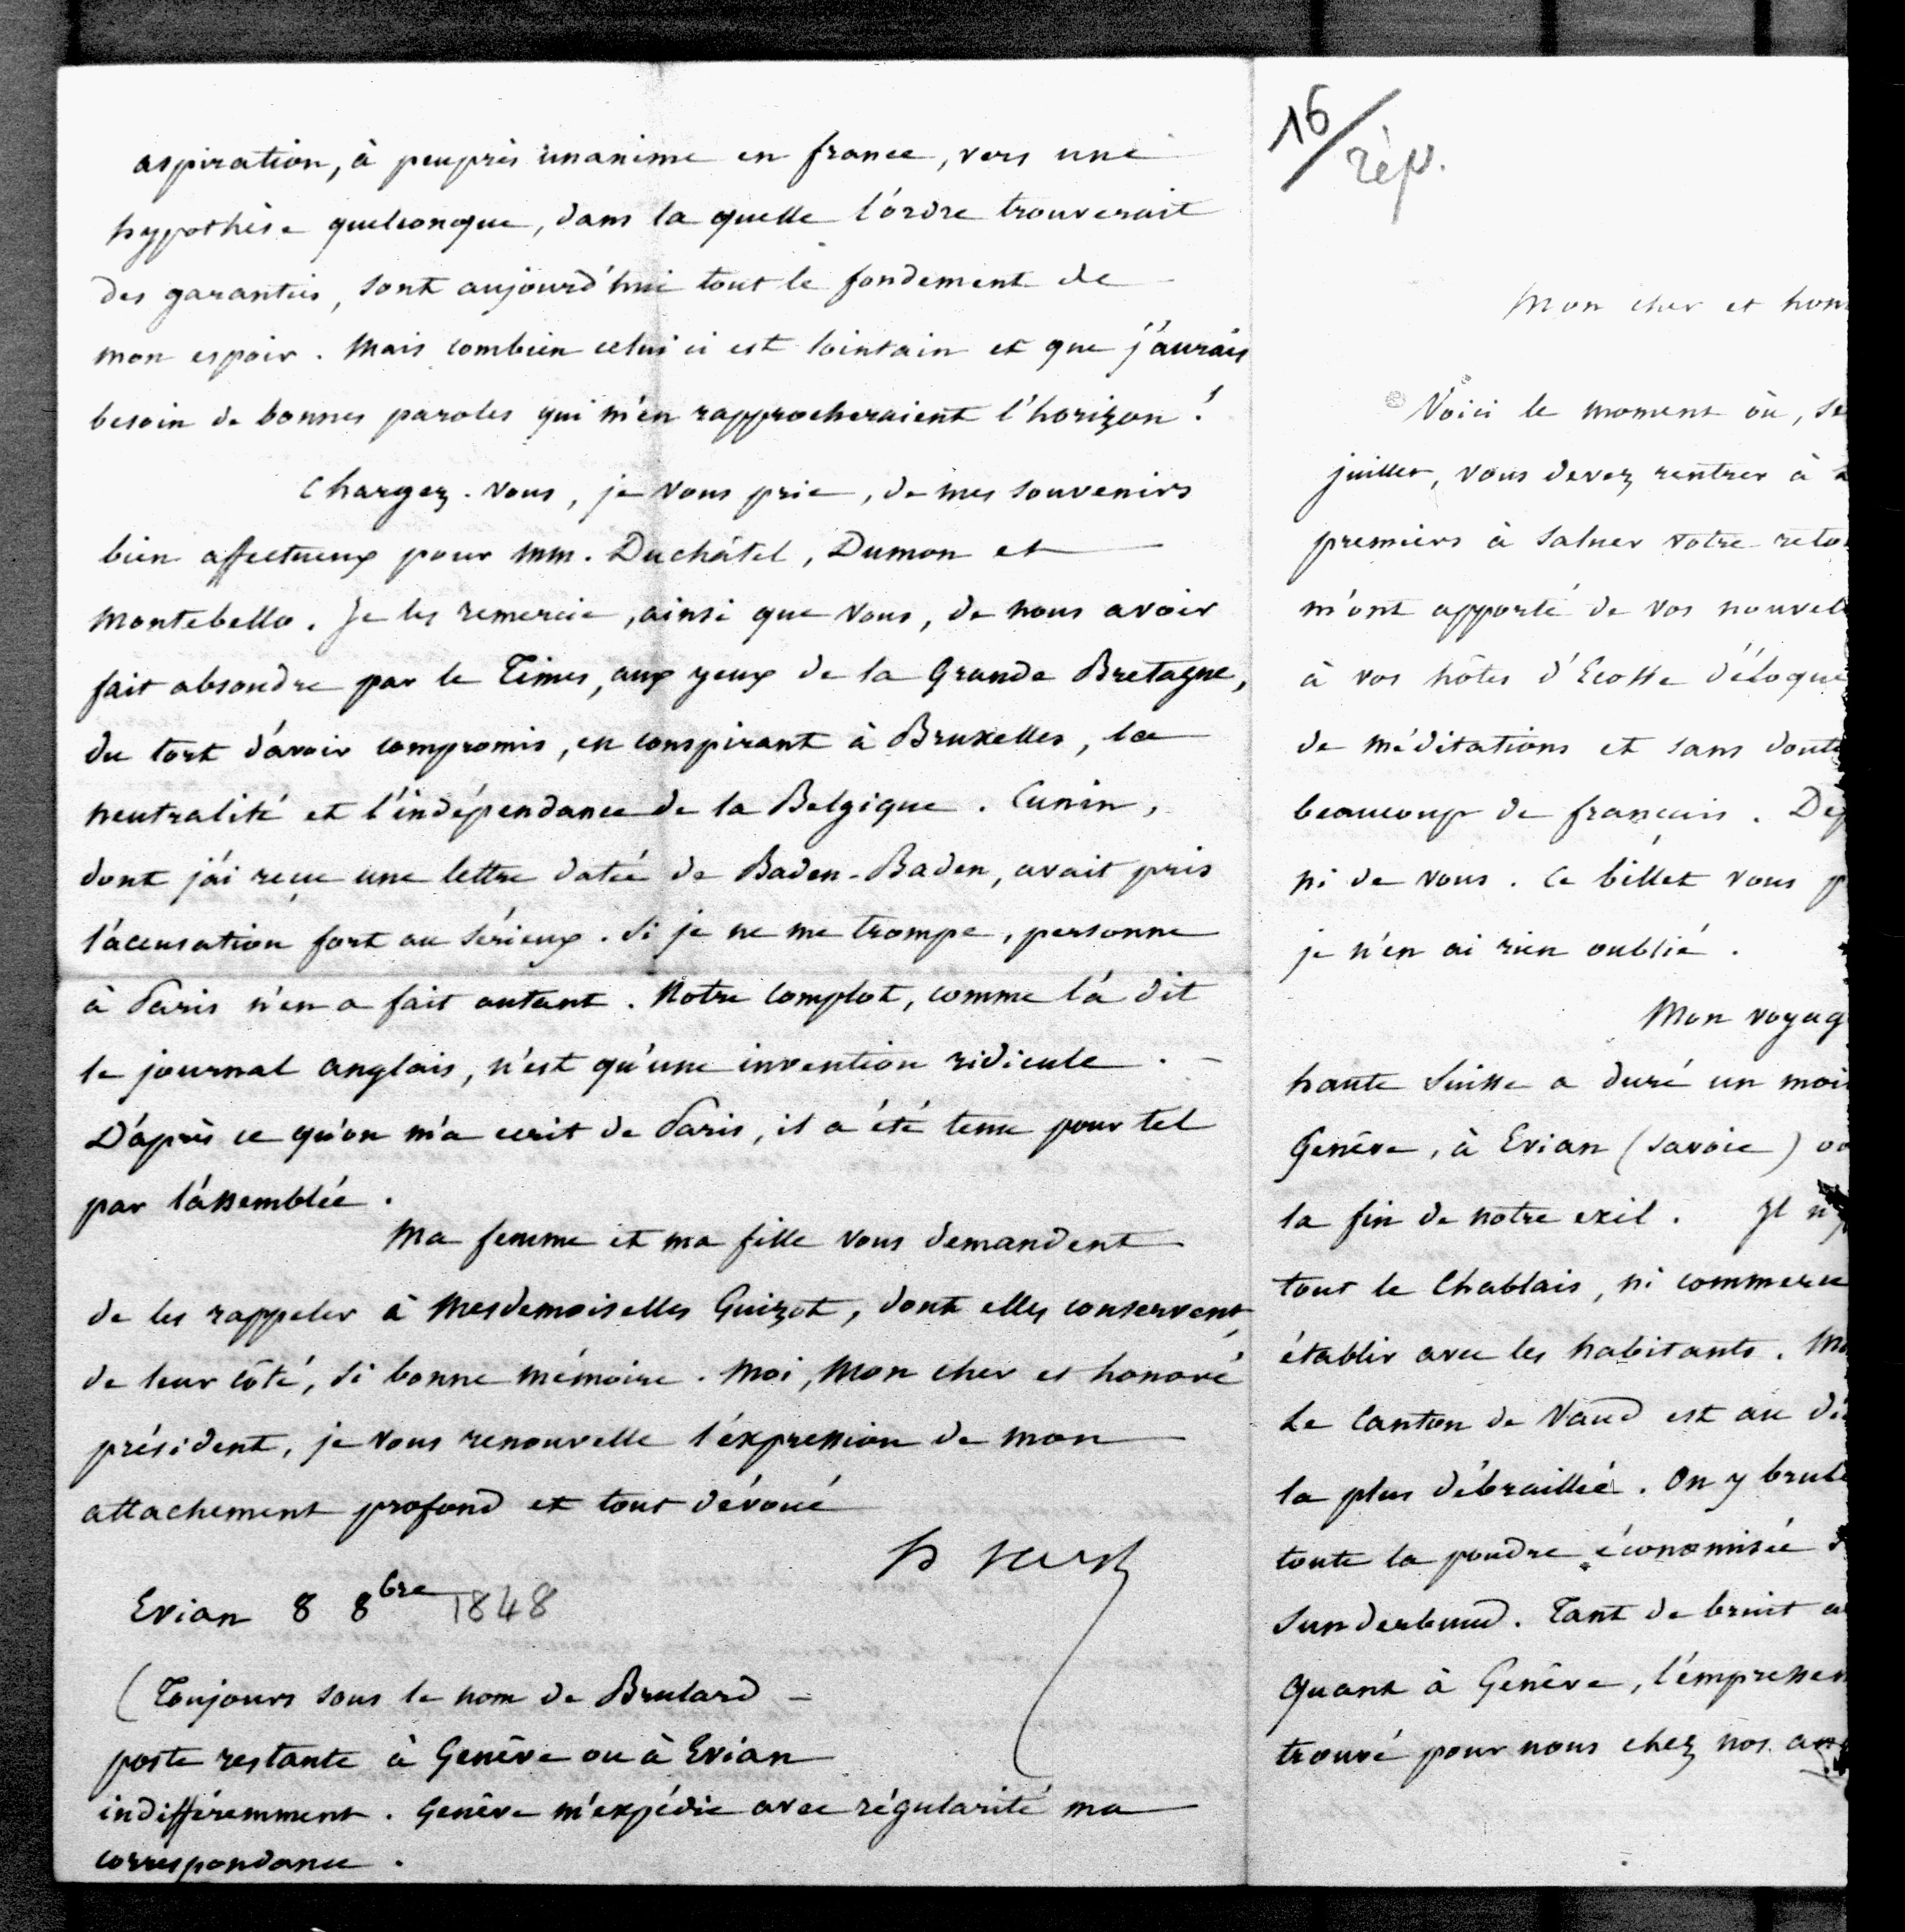 aspiration, à peuprès unanime en france, vers une
hypothèse quelconque, dans la quelle l'ordre trouverait
des garanties, sont aujourd'hui tout le fondement de
mon espoir. Mais combien celui ci est lointain et que j'aurais
besoin de bonnes paroles qui m'en rapprocheraient l'horizon!
Chargez-vous, je vous prie, de mes souvenirs
bien affectueux pour MM. Duchâtel, Dumon et
Montebello. Je les remercie, ainsi que vous, de nous avoir
fait absoudre par le Times, aux yeux de la Grande Bretagne,
du tort d'avoir compromis, en conspirant à Bruxelles, la
neutralité et l'indépendance de la Belgique. Cunin,
dont j'ai reçu une lettre datée de Baden-Baden, avait pris
l'accusation fort au sérieux. Si je ne me trompe, personne
à Paris n'en a fait autant. Notre complot, comme l'a dit
le journal anglais, n'est qu'une invention ridicule. -
D'après ce qu'on m'a ecrit de Paris, il a été tenu pour tel
par l'assemblée.
Ma femme et ma fille vous demandent
de les rappeler à Mesdemoiselles Guizot, dont elles conservent,
de leur côté, si bonne mémoire. Moi, Mon cher et honoré
président, je vous renouvelle l'expression de mon
attachement profond et tout dévoué
Evian 8 8bre 1848
(Toujours sous le nom de Brulard -
poste restante à Genève ou à Evian
indifféremment. Genève m'expédie avec régularité ma
correspondance.
16/rép.
Mon cher et hon
Voici le moment où, se
juillet, vous devez rentrer à
premiers à saluer votre reto
m'ont apporté de vos nouvel
à vos hôtes d'Ecosse d'éloque
de méditations et sans doute
beaucoup de français. Dep
ni de vous. Ce billet vous p
je n'en ai rien oublié.
Mon voyag
haute Suisse a duré un moi
Genève, à Evian (Savoie) où
la fin de notre exil. Il n'y
tout le Chablais, ni commerce
établir avec les habitants. Ma
Le Canton de Vaud est au dé
la plus débraillée. On y brule
toute la poudre économisée
Sunderbund. Tant de bruit a
Quant à Genève, l'empressem
trouvé pour nous chez nos am